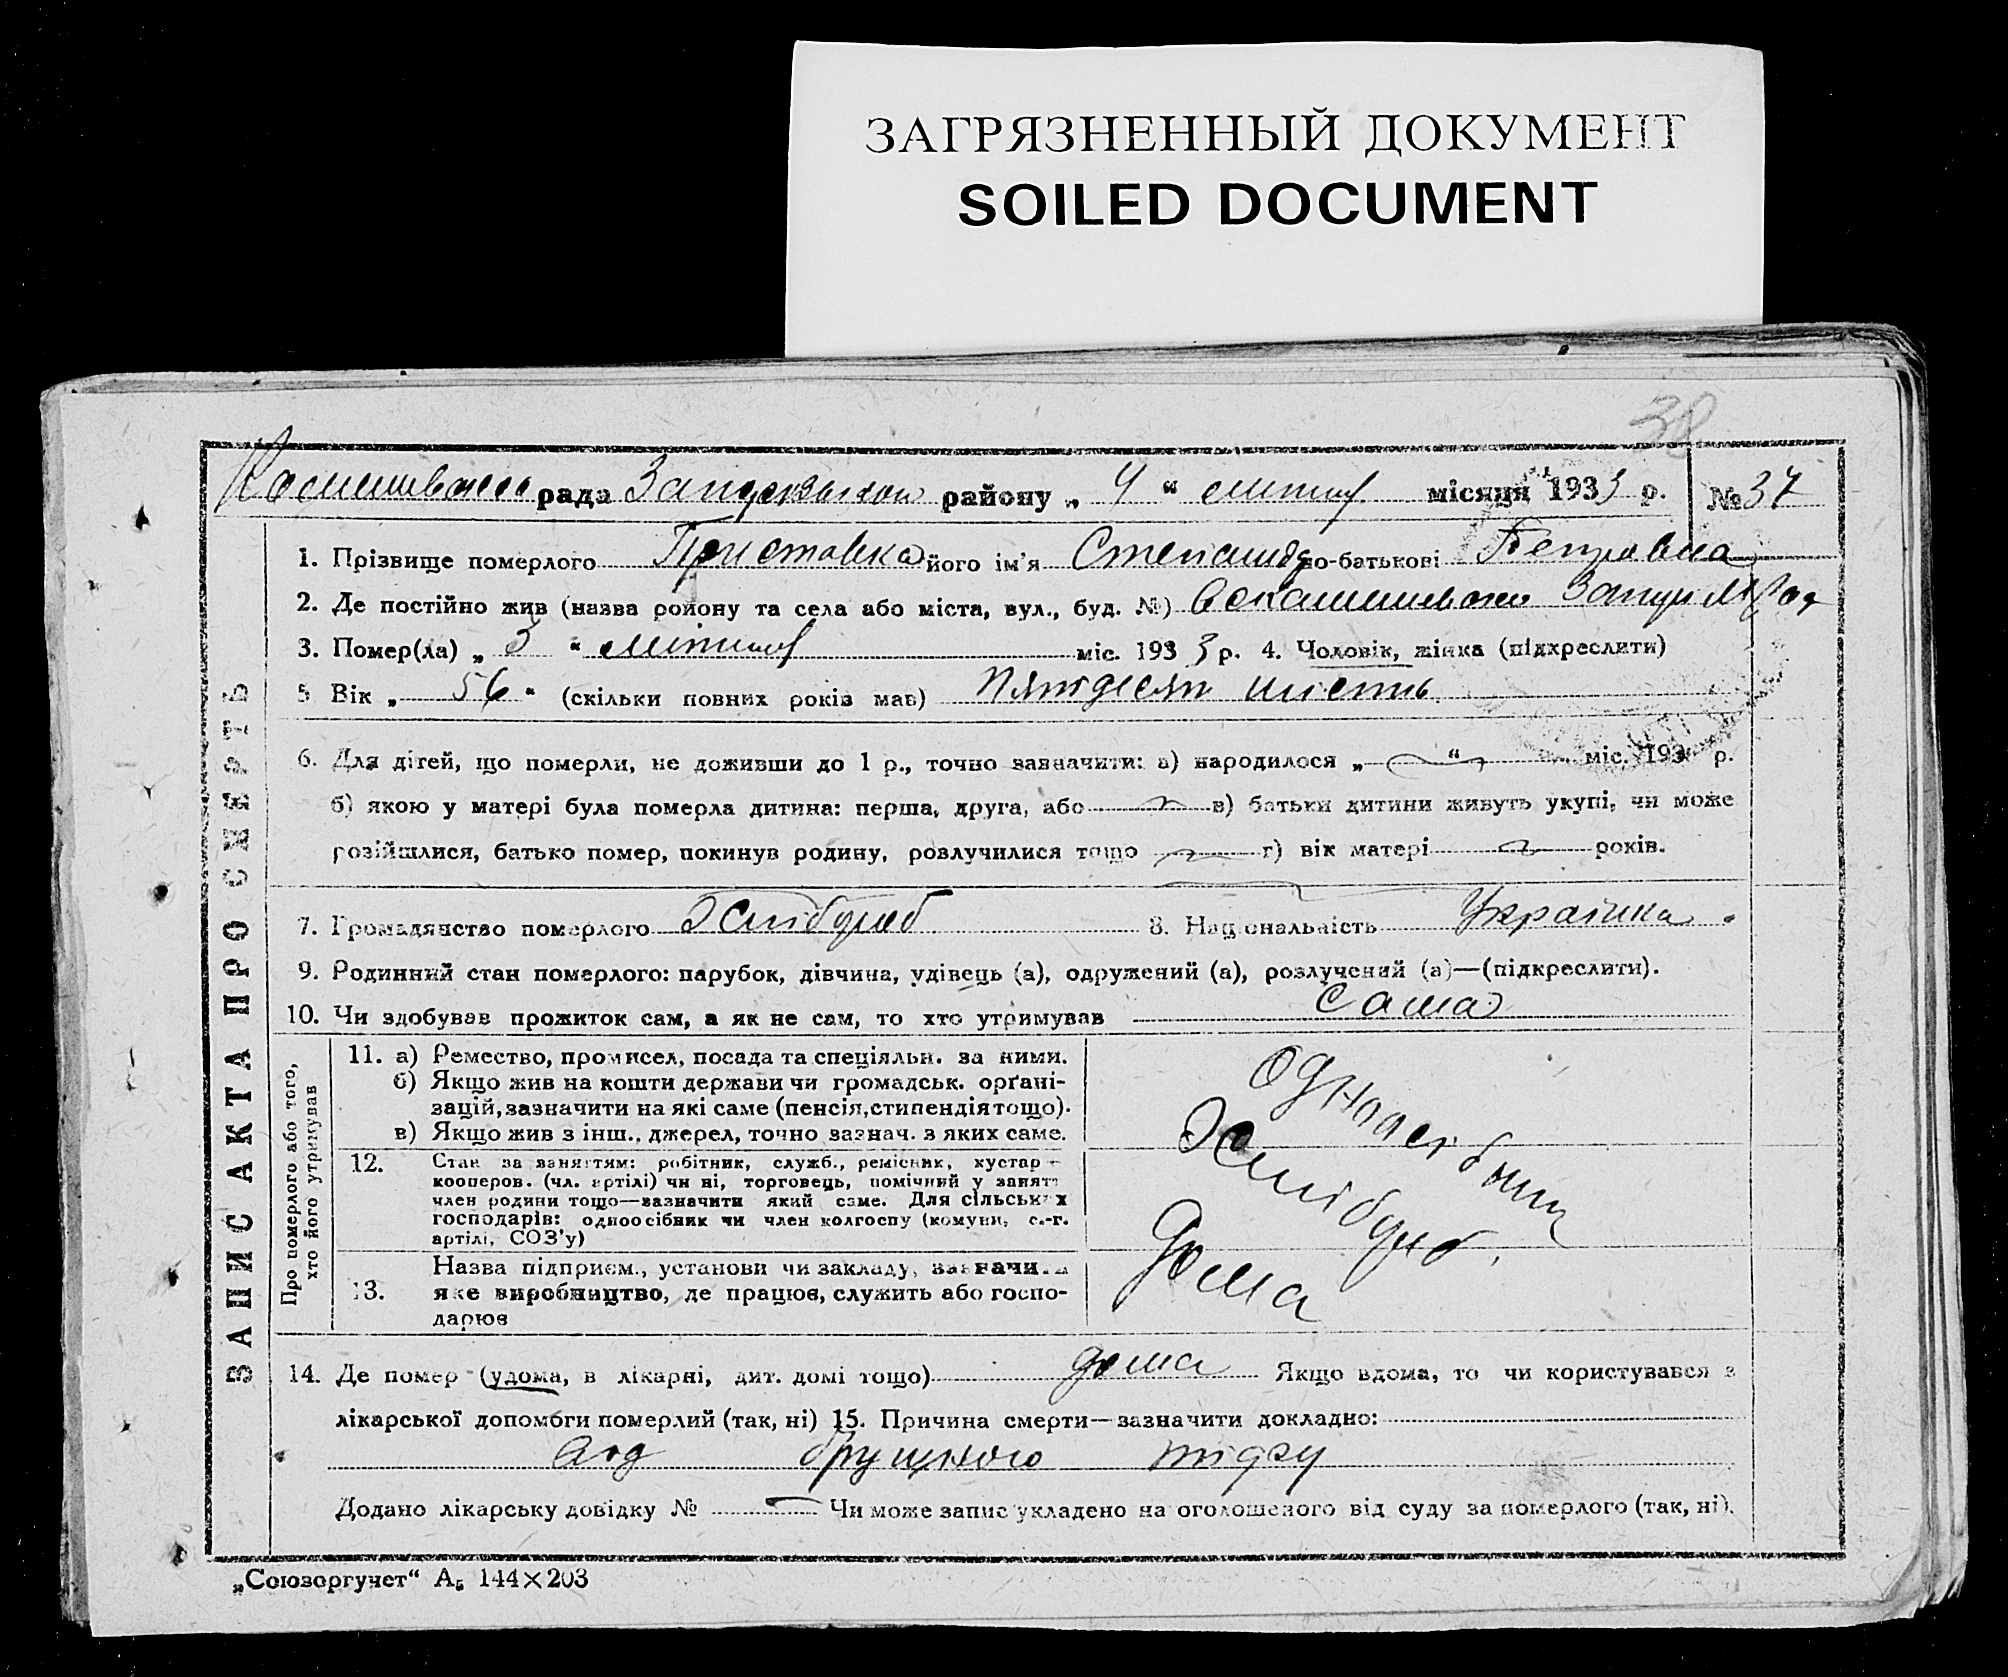 ЗАГРЯЗНЕННЫЙ ДОКУМЕНТ
SOILED DOCUMENT
38
рада району „ 4 “ місяця 1933 р. № 37
1. Прізвище померлого Приставка його ім’я Степанида по-батькові Петровна
2. Де постійно жив (назва району та села або міста, вул., буд. №)
3. Помер(ла) „ 3 “ міс. 1933 р. 4. Чоловік, жінка (підкреслити)
5 Вік „ 56 “ (скільки повних років мав) Пятдесят шість
6. Для дітей, що померли, не доживши до 1 р., точно зазначити: а) народилося „ “ міс. 193 р.
б) якою у матері була померла дитина: перша, друга, або в) батьки дитини живуть укупі, чи може
розійшлися, батько помер, покинув родину, розлучилися тощо г) вік матері років.
7. Громадянство померлого Хлібороб 8. Національність Українка
9. Родинний стан померлого: парубок, дівчина, удівець (а), одружений (а), розлучений (а)—(підкреслити).
10. Чи здобував прожиток сам, а як не сам, то хто утримував сама
ЗАПИС АКТА ПРО СМЕРТЬ
Про померлого або того,
хто його утримував
11. а) Ремество, промисел, посада та спеціяльн. за ними.
б) Якщо жив на кошти держави чи громадськ. орґані-
зацій, зазначити на які саме (пенсія, стипендія тощо).
в) Якщо жив з інш., джерел, точно зазнач. з яких саме.
12. Стан за заняттям: робітник, служб., ремісник, кустар
кооперов. (чл. артілі) чи ні, торговець, помічний у занятт
член родини тощо—зазначити який саме. Для сільських
господарів: одноосібник чи член колгоспу (комуни, с.-г.
артілі, СОЗ’у)
13. Назва підприєм., установи чи закладу, зазначити
яке виробництво, де працює, служить або госпо-
дарює
Хлібороб
дома
14. Де помер (удома, в лікарні, дит. домі тощо) дома Якщо вдома, то чи користувався з
лікарської допомоги померлий (так, ні) 15. Причина смерти—зазначити докладно:
од брушного тіфу
Додано лікарську довідку № Чи може запис укладено на оголошеного від суду за померлого (так, ні).
„Союзоргучет“ А₅ 144×203